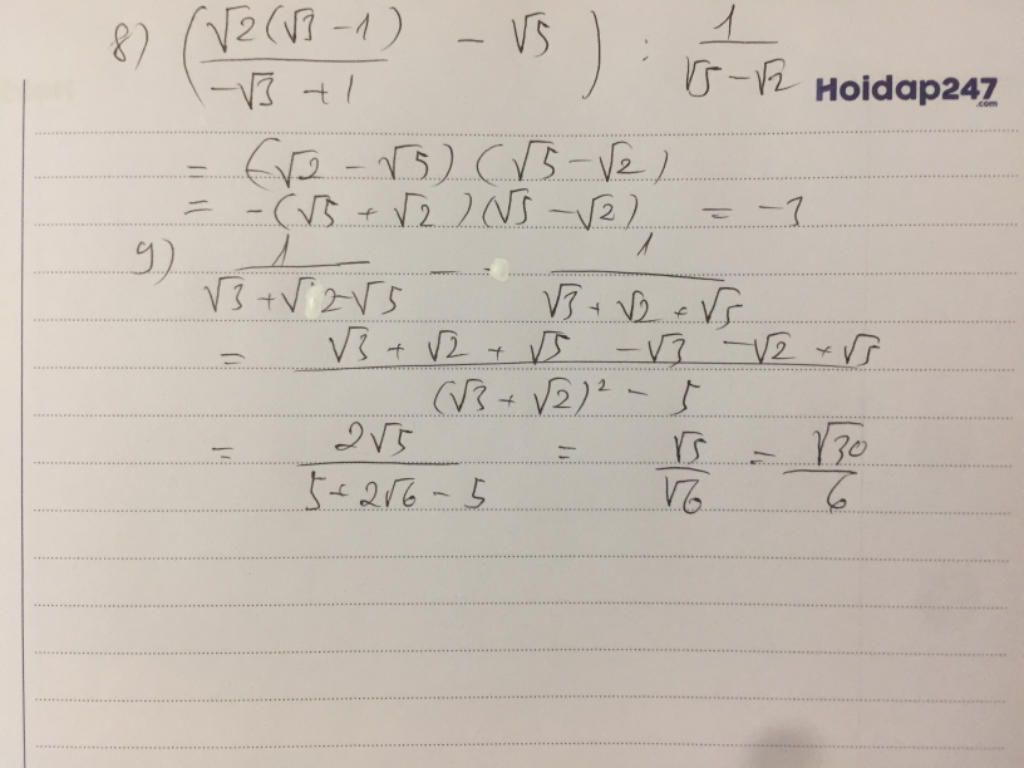 8) (√2(√3 - 1) / (-√3 + 1) - √5) : 1 / (√5 - √2)
Hoidap247
.com
= (-√2 - √5) (√5 - √2)
= -(√5 + √2) (√5 - √2) = -3
9) 1 / (√3 + √2 - √5) - 1 / (√3 + √2 + √5)
= (√3 + √2 + √5 - √3 - √2 + √5) / ((√3 + √2)² - 5)
= 2√5 / (5 + 2√6 - 5) = √5 / √6 = √30 / 6